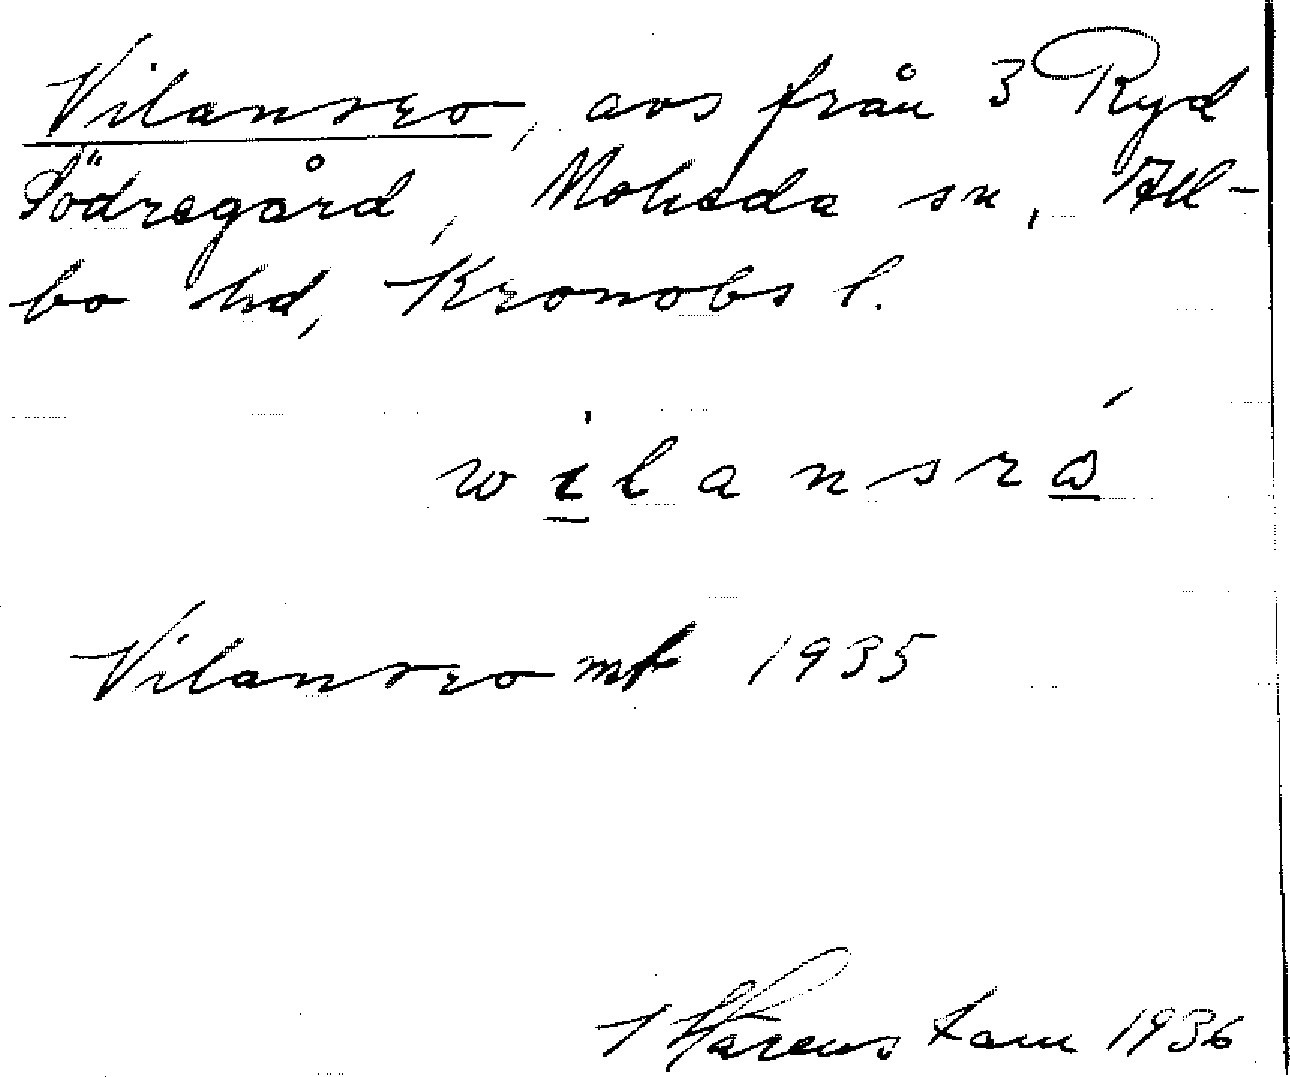 Vilansro, avs från 3 Ryd
Södregård, Moheda sn, All-
bo hd, Kronobs l.
wilansró
Vilansro mb 1935
Härenstam 1936